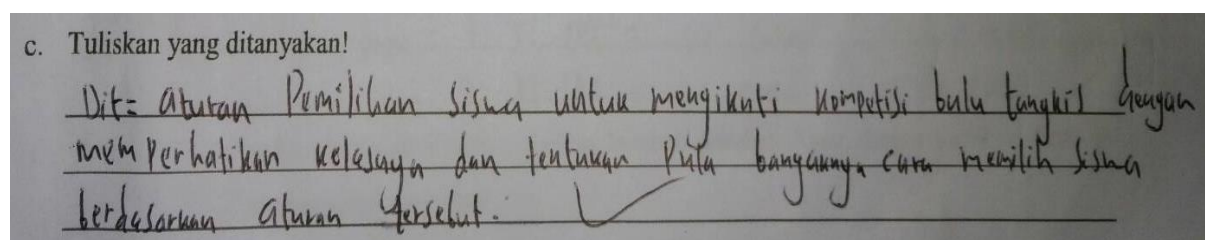 c. Tuliskan yang ditanyakan!
Dit= aturan Pemilihan siswa untuk mengikuti kompetisi bulu tangkis dengan
memperhatikan kelasnya dan tentukan Pula banyaknya cara memilih siswa
berdasarkan aturan tersebut.